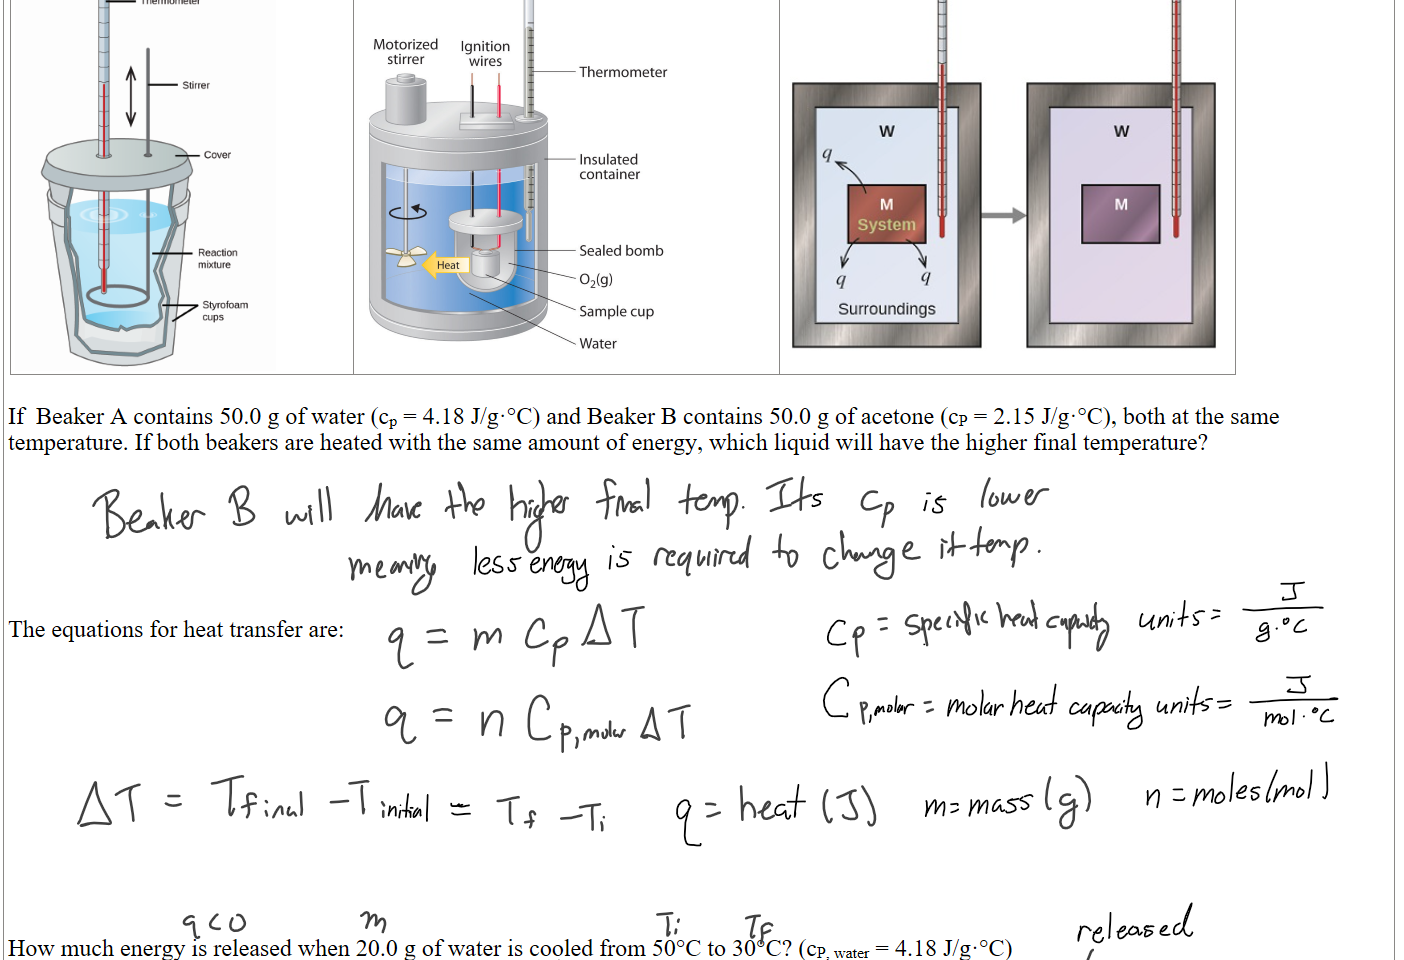 Thermometer
Stirrer
Cover
Reaction
mixture
Styrofoam
cups
Motorized
stirrer
Ignition
wires
Thermometer
Insulated
container
Sealed bomb
O₂(g)
Sample cup
Water
Heat
W
q
M
System
q
q
Surroundings
W
M
If Beaker A contains 50.0 g of water (cₚ = 4.18 J/g·°C) and Beaker B contains 50.0 g of acetone (cP = 2.15 J/g·°C), both at the same
temperature. If both beakers are heated with the same amount of energy, which liquid will have the higher final temperature?
Beaker B will have the higher final temp. Its Cp is lower
meaning less energy is required to change it temp.
The equations for heat transfer are: q = m Cp ΔT
Cp = specific heat capacity units = J/g·°C
q = n Cp,molar ΔT
Cp,molar = molar heat capacity units = J/mol·°C
ΔT = Tfinal - Tinitial = Tf - Ti q = heat (J) m = mass (g) n = moles (mol)
q < 0 m Ti Tf released
How much energy is released when 20.0 g of water is cooled from 50°C to 30°C? (cP, water = 4.18 J/g·°C)